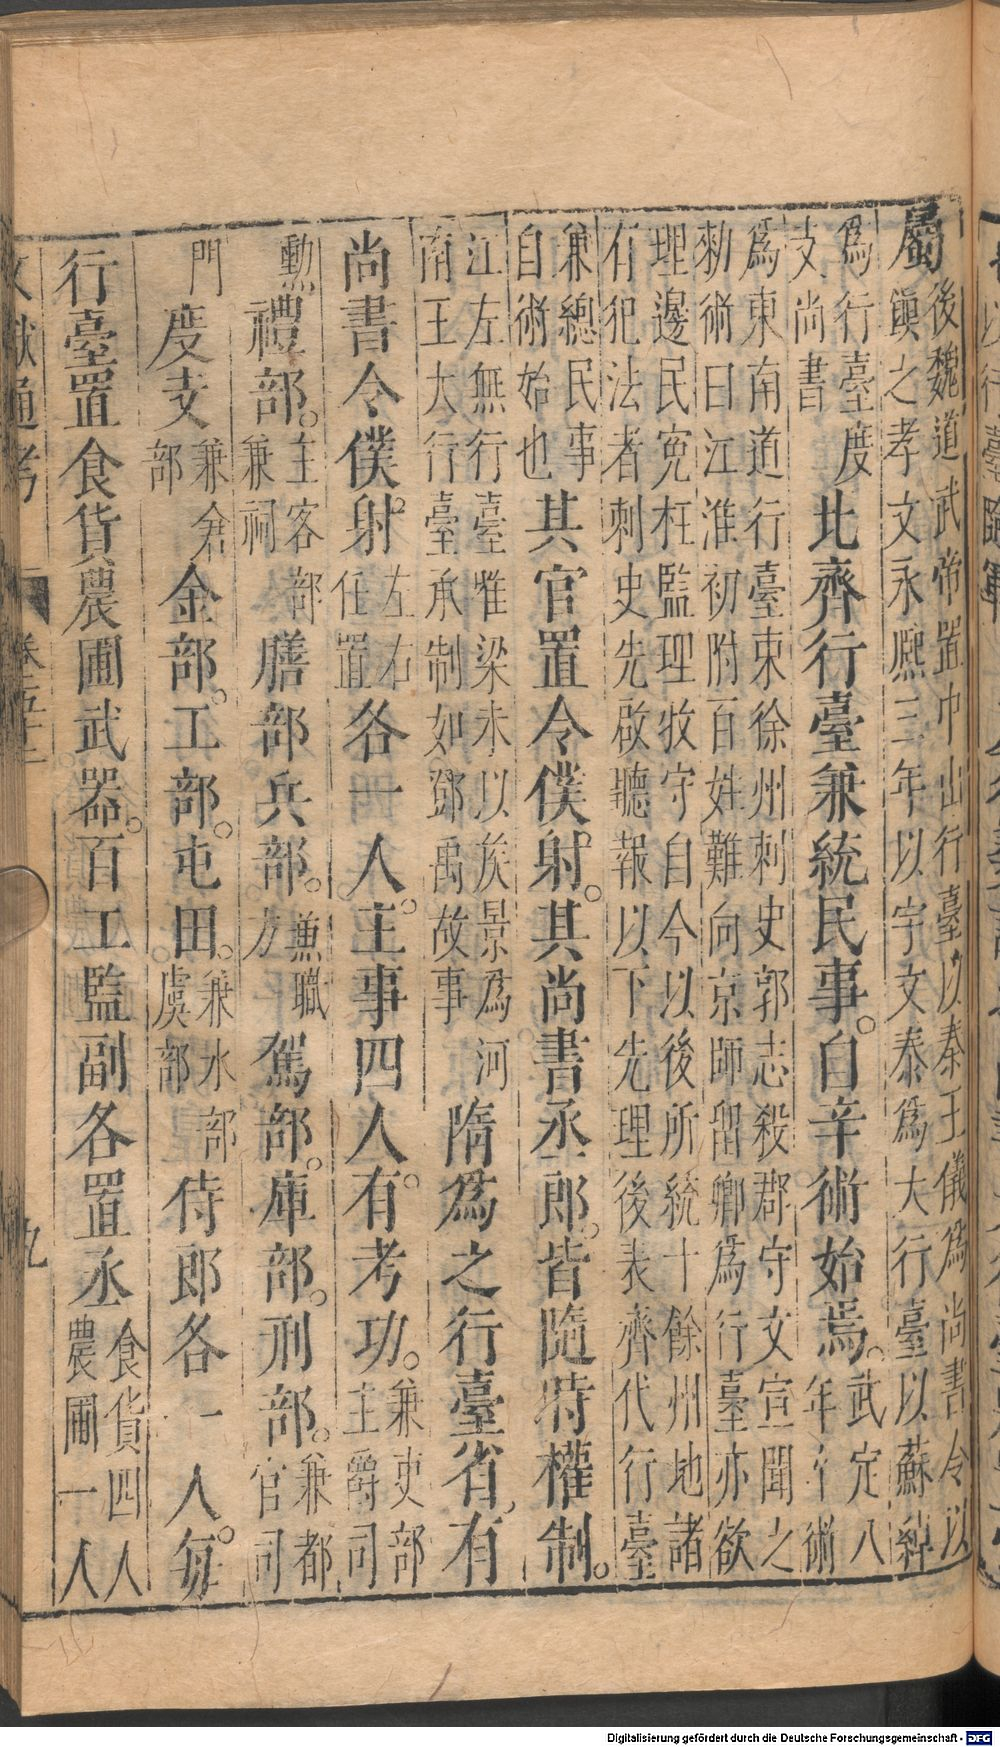 屬後魏道武帝置中山行臺以秦王儀爲尚書令以
鎭之孝文永熙三年以宇文泰爲大行臺以蘇綽
爲行臺度
支尚書北齊行臺兼統民事。自辛術始焉。武定八
年辛術
爲東南道行臺東徐州刺史郭志殺郡守文宣聞之
勑術曰江淮初附百姓難向京師留卿爲行臺亦欲
理邊民寃枉監理牧守自今以後所統十餘州地諸
有犯法者刺史先啟聽報以下先理後表齊代行臺
兼總民事
自術始也其官置令僕射。其尚書丞郎。皆隨時權制。
江左無行臺惟梁末以侯景爲河
南王大行臺承制如鄧禹故事隋爲之行臺省有
尚書令僕射。左右
任置各一人。主事四人。有考功。兼吏部
主爵司
勲禮部。主客部
兼祠膳部兵部。兼職
方駕部。庫部。刑部。兼都
官司
門度支兼倉
部金部。工部。屯田。兼水部
虞部侍郎各一人。每
行臺置食貨農圃武器。百工監副各置丞食貨四人
農圃一人
文獻通考
卷五十二
九
Digitalisierung gefördert durch die Deutsche Forschungsgemeinschaft - DFG